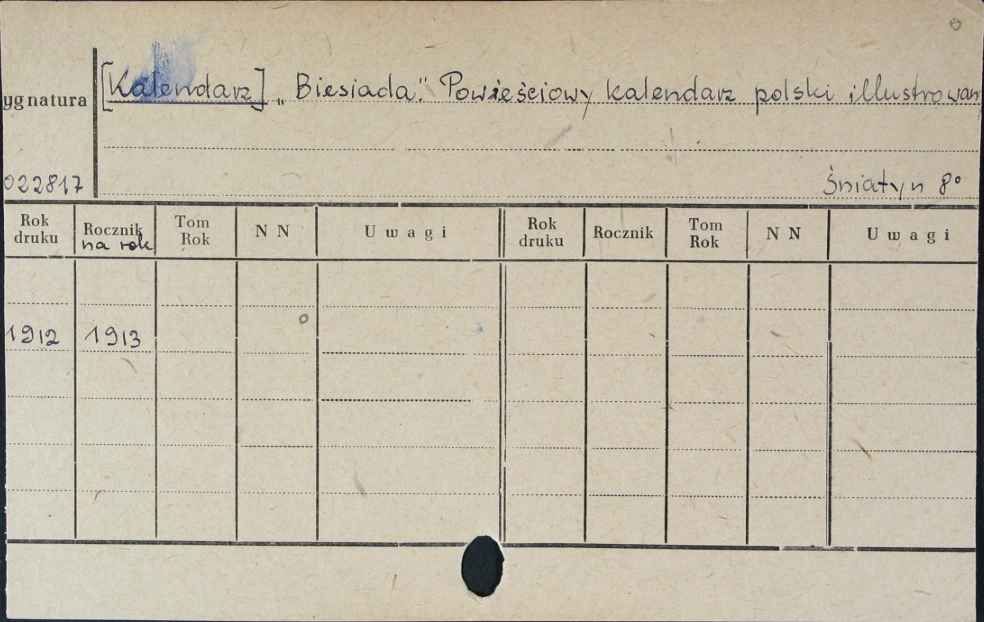 [Kalendarz] „Biesiada". Powieściowy kalendarz polski illustrowan
ygnatura
022817
Śniatyn 8°
Rok druku Rocznik na rok Tom Rok N N Uwagi Rok druku Rocznik Tom Rok N N Uwagi
1912 1913